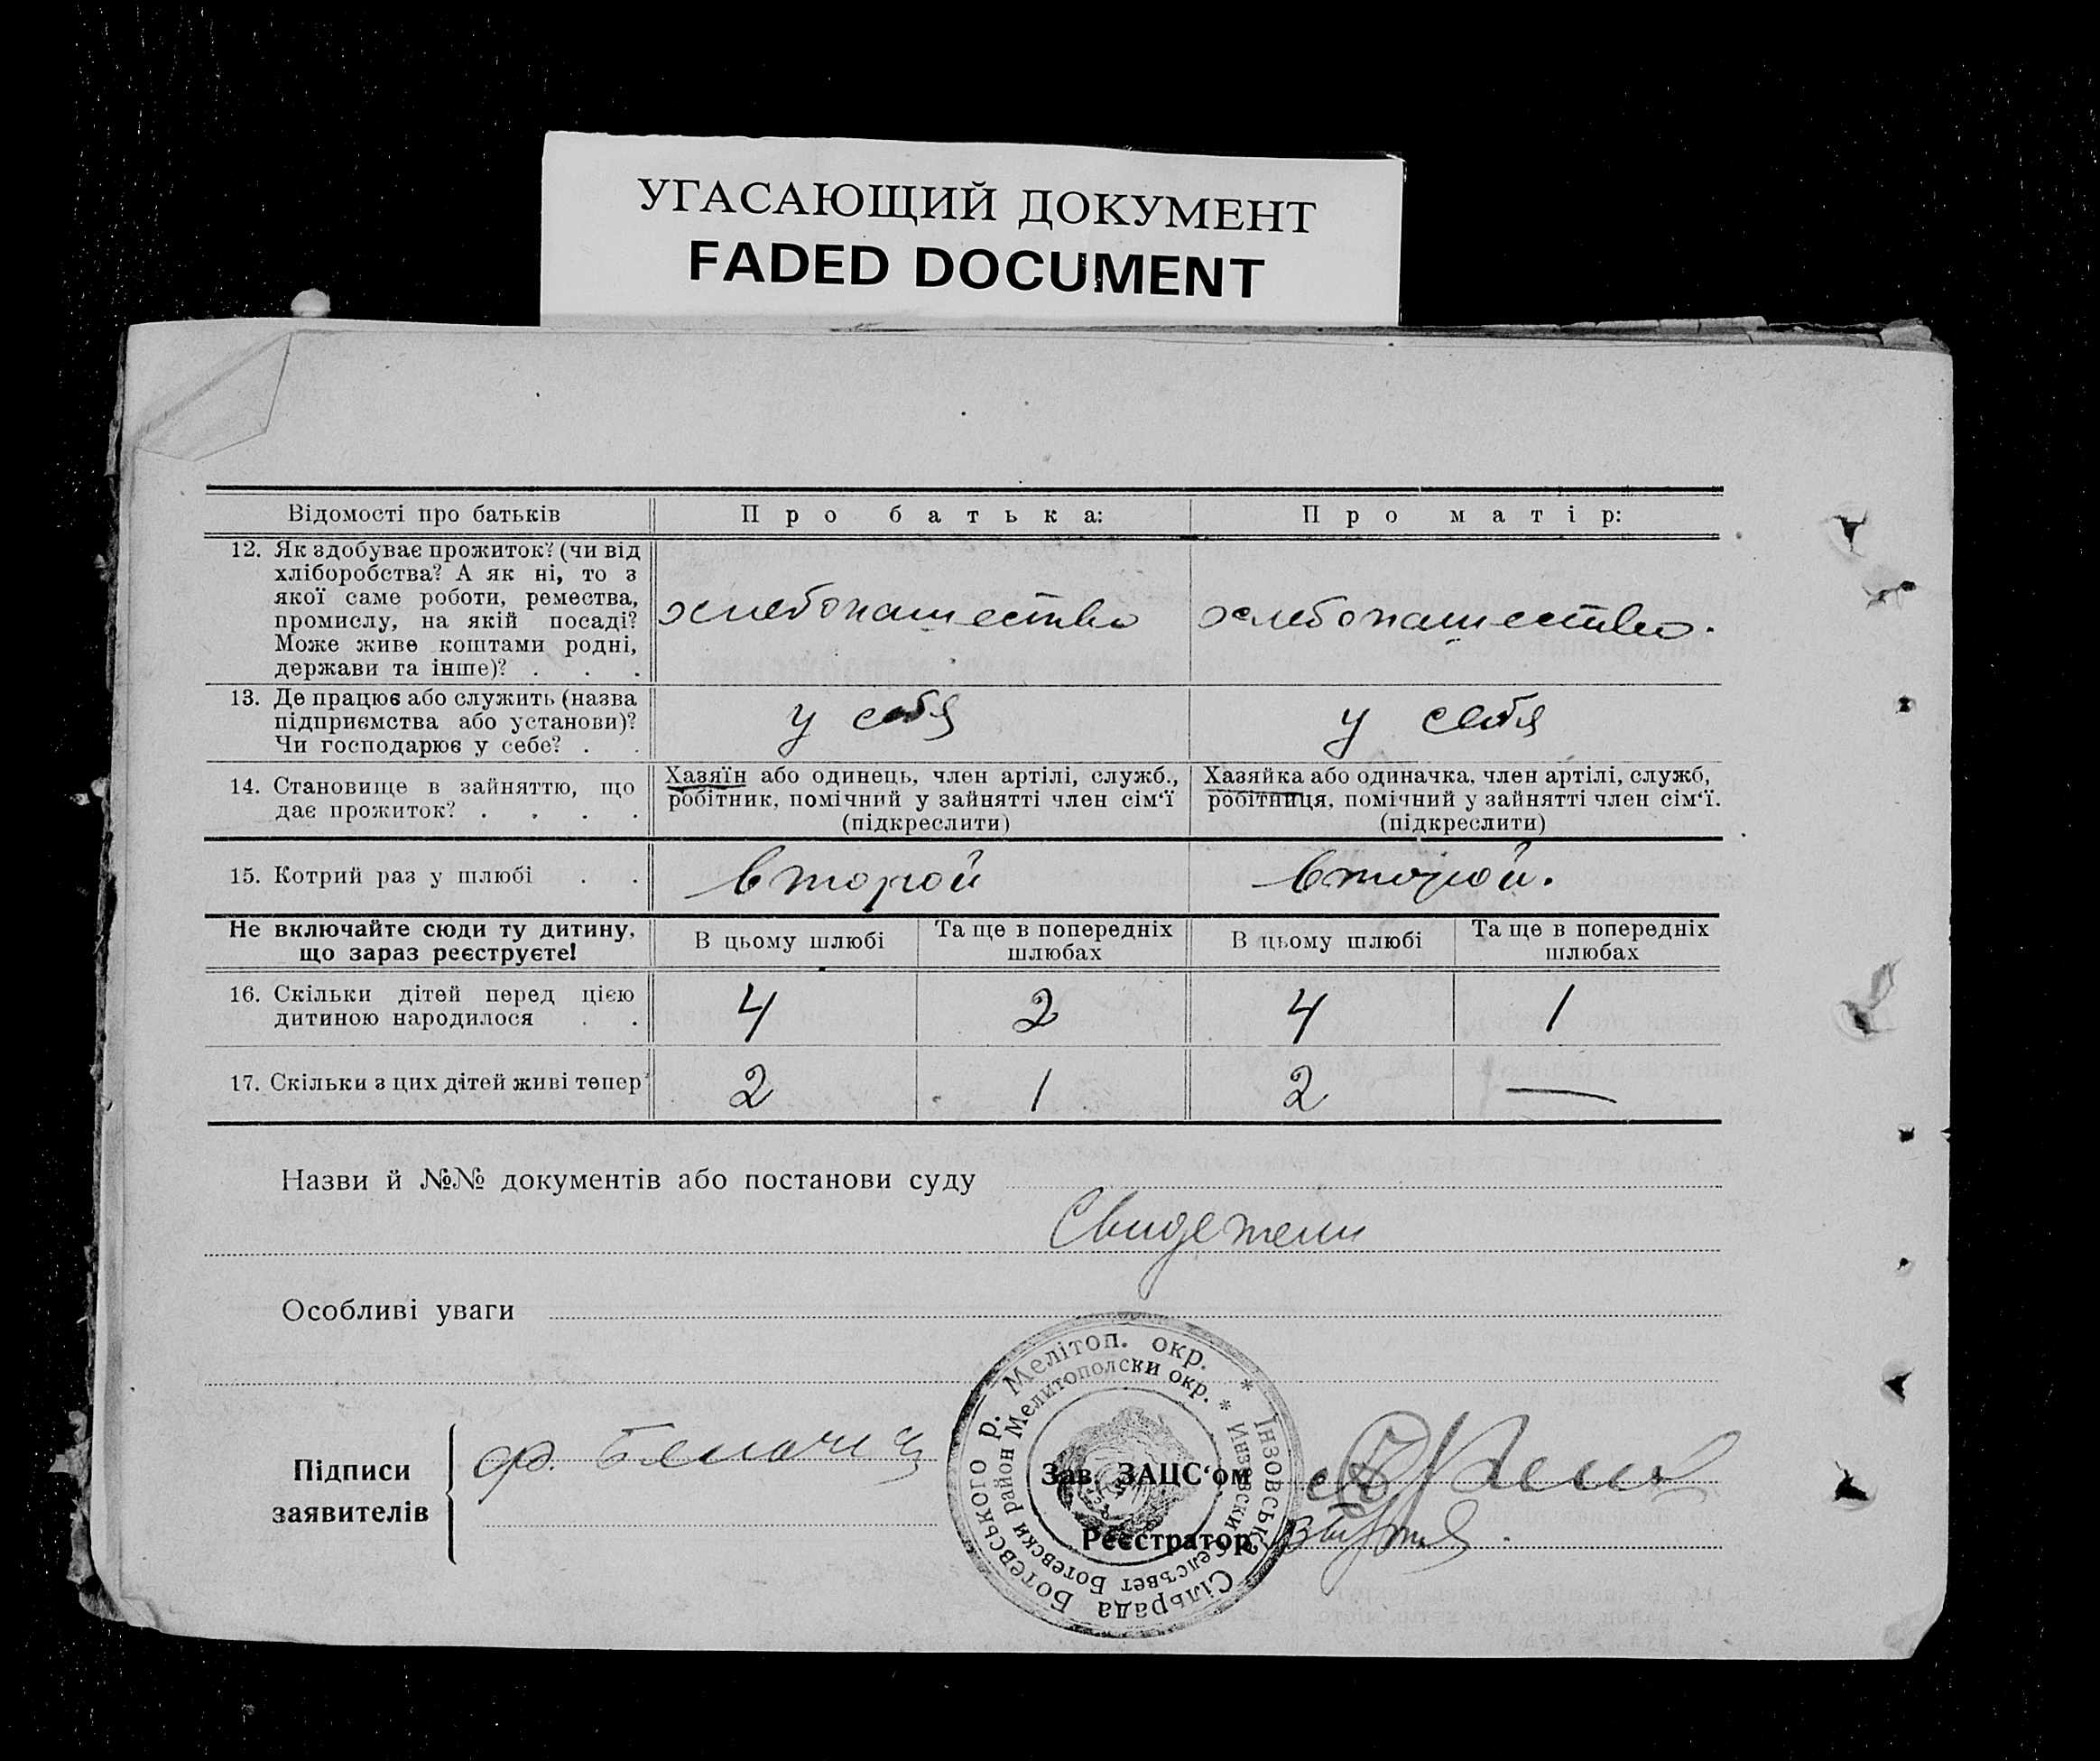 УГАСАЮЩИЙ ДОКУМЕНТ
FADED DOCUMENT
Відомості про батьків
Про батька:
Про матір:
12. Як здобуває прожиток? (чи від
хліборобства? А як ні, то з
якої саме роботи, ремества,
промислу, на якій посаді?
Може живе коштами родні,
держави та інше)? . . .
хлебопашество
хлебопашество.
13. Де працює або служить (назва
підприємства або установи)?
Чи господарює у себе? . .
у себя
у себя
14. Становище в зайняттю, що
дає прожиток? . . . .
Хазяїн або одинець, член артілі, служб.,
робітник, помічний у зайнятті член сім‘ї
(підкреслити)
Хазяйка або одиначка, член артілі, служб,
робітниця, помічний у зайнятті член сім‘ї.
(підкреслити)
15. Котрий раз у шлюбі . .
второй
второй.
Не включайте сюди ту дитину,
що зараз реєструєте!
В цьому шлюбі
Та ще в попередніх
шлюбах
В цьому шлюбі
Та ще в попередніх
шлюбах
16. Скільки дітей перед цією
дитиною народилося . .
4
2
4
1
17. Скільки з цих дітей живі тепер
2
1
2
—
Назви й №№ документів або постанови суду
Свидетели
Особливі уваги
Підписи
заявителів
Ф.
Зав. ЗАЦС‘ом
Реєстратор
Інзовська Сільрада Ботевського р. Мелітоп. окр. *
Инзовски Селсъвет Ботевски район Мелитополски окр. *